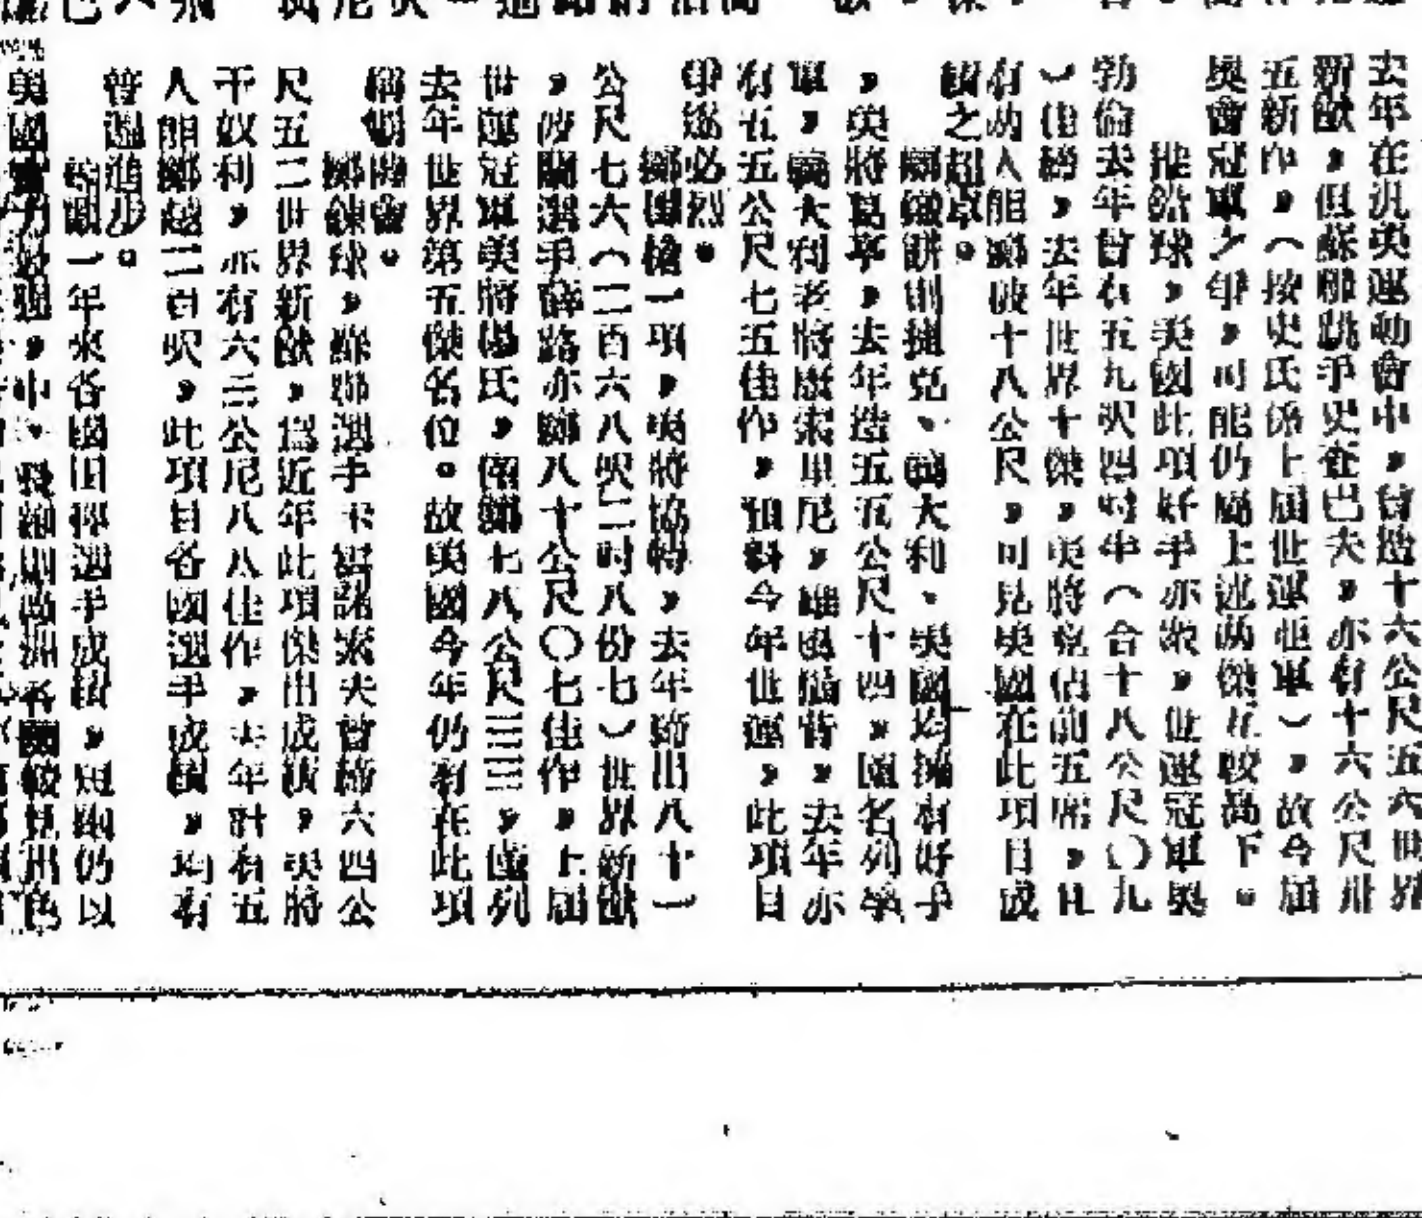 去年在汎美運動會中，曾造十六公尺五六世界
新猷，但蘇聯跳手史查巴夫，亦有十六公尺卅
五新作，（按史氏係上屆世運亞軍），故今屆
奧會冠軍之爭，可能仍屬上述兩傑互較高下。
推鉛球，美國此項好手亦衆，世運冠軍奧
勃倫去年曾有五九呎四吋半（合十八公尺〇九
）佳績，去年世界十傑，美將竟佔前五席，且
有兩人能擲破十八公尺，可見美國在此項目成
績之超卓。
擲鐵餅則捷克、義大利、美國均擁有好手
，美將葛亭，去年造五五公尺十四，園名列學
軍，義大利老將康索里尼，雖屈膺背，去年亦
有五五公尺七五佳作，預料今年世運，此項目
爭逐必烈。
擲標槍一項，美將協特，去年締出八十一
公尺七六（二百六八呎二吋八份七）世界新猷
，波蘭選手薛路亦擲八十公尺〇七佳作，上屆
世運冠軍美將楊氏，僅擲七八公尺三三，僅列
去年世界第五傑名位。故美國今年仍有在此項
稱覇機會。
擲鍊球，蘇聯選手卡諾索夫曾締六四公
尺五二世界新猷，爲近年此項傑出成績，美將
干奴利，亦有六三公尺八八佳作，去年計有五
人能擲越二百呎，此項目各國選手成績，均有
普遍進步。
一年來各國田徑選手成績，短跑仍以
美國實力最強，中、長跑則歐洲各國較見出色